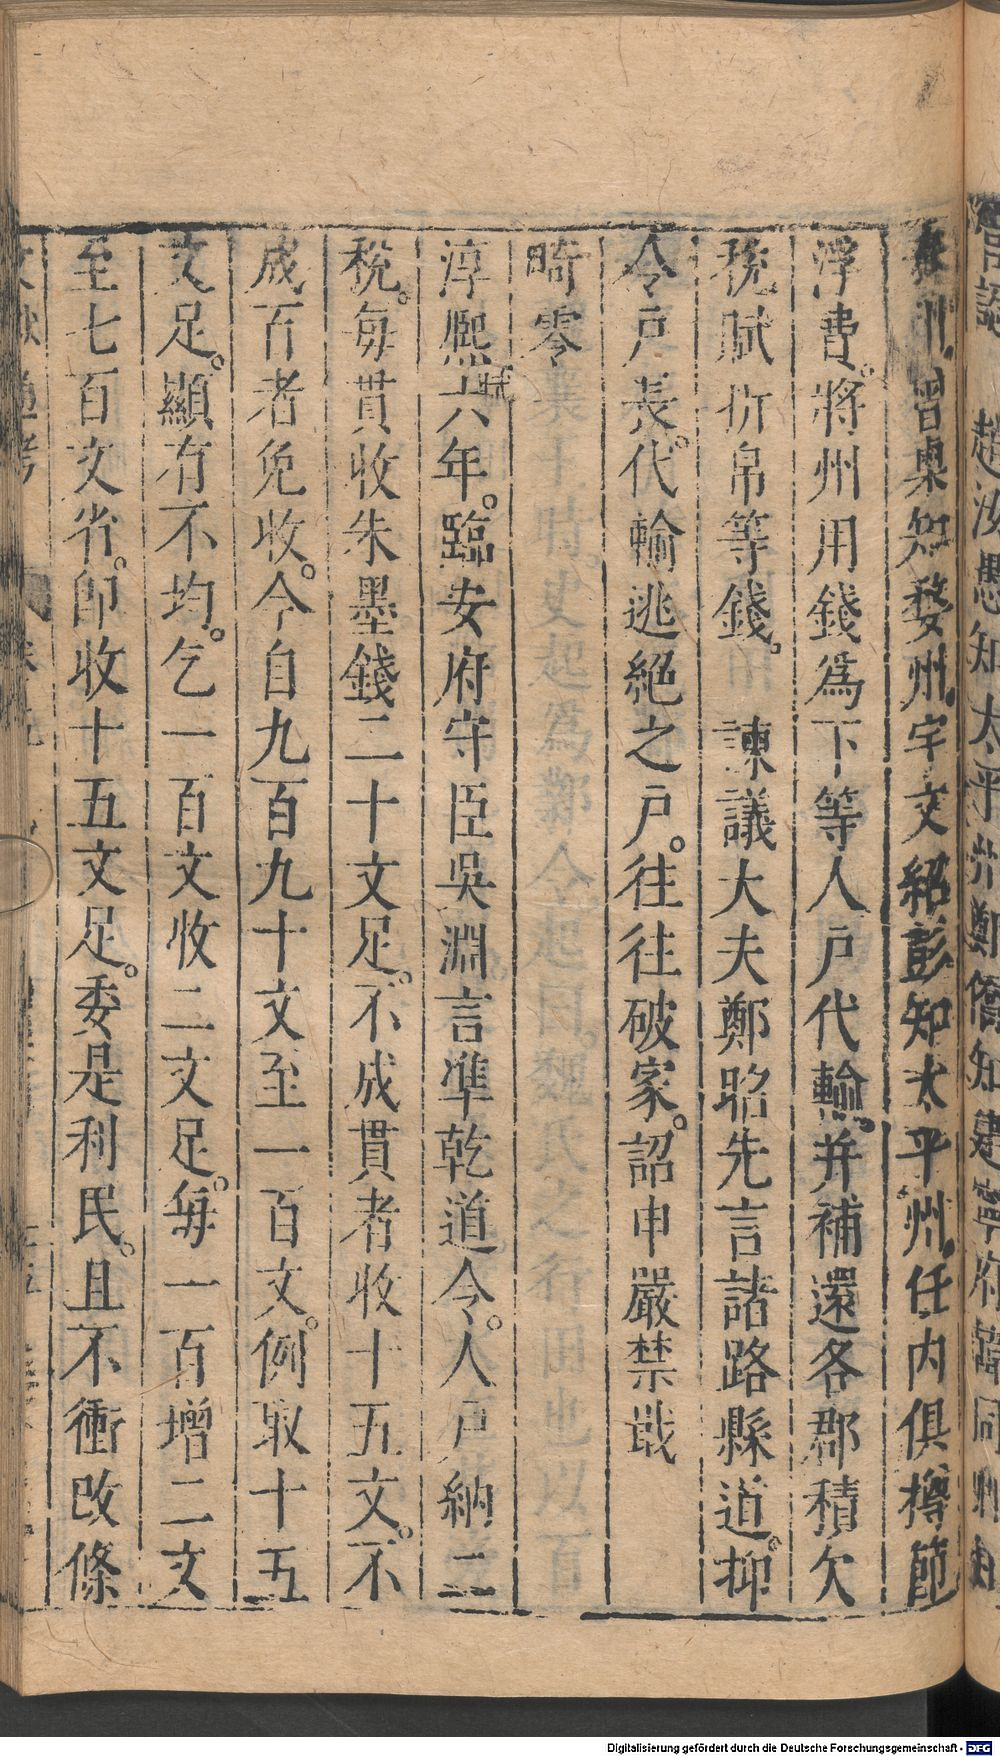 知婺州宇文紹彭知太平州任内俱撙節
浮費。將州用錢爲下等人戸代輸。并補還各郡積欠
稅賦折帛等錢。諫議大夫鄭
先言諸路縣道。抑
令戸長。代輸逃絕之戸。往往破家。詔申嚴禁戢
畸零
淳熙六年。臨安府守臣吳淵言準乾道令。人戸納二
稅。每貫收朱墨錢二十文足。不成貫者收十五文。不
成百者免收。今自九百九十文至一百文。例取十五
文足。顯有不均。乞一百文收二文足。每一百增二文
至七百文省。即收十五文足。委是利民。且不衝改條
文獻通考
Digitalisierung gefördert durch die Deutsche Forschungsgemeinschaft - DFG